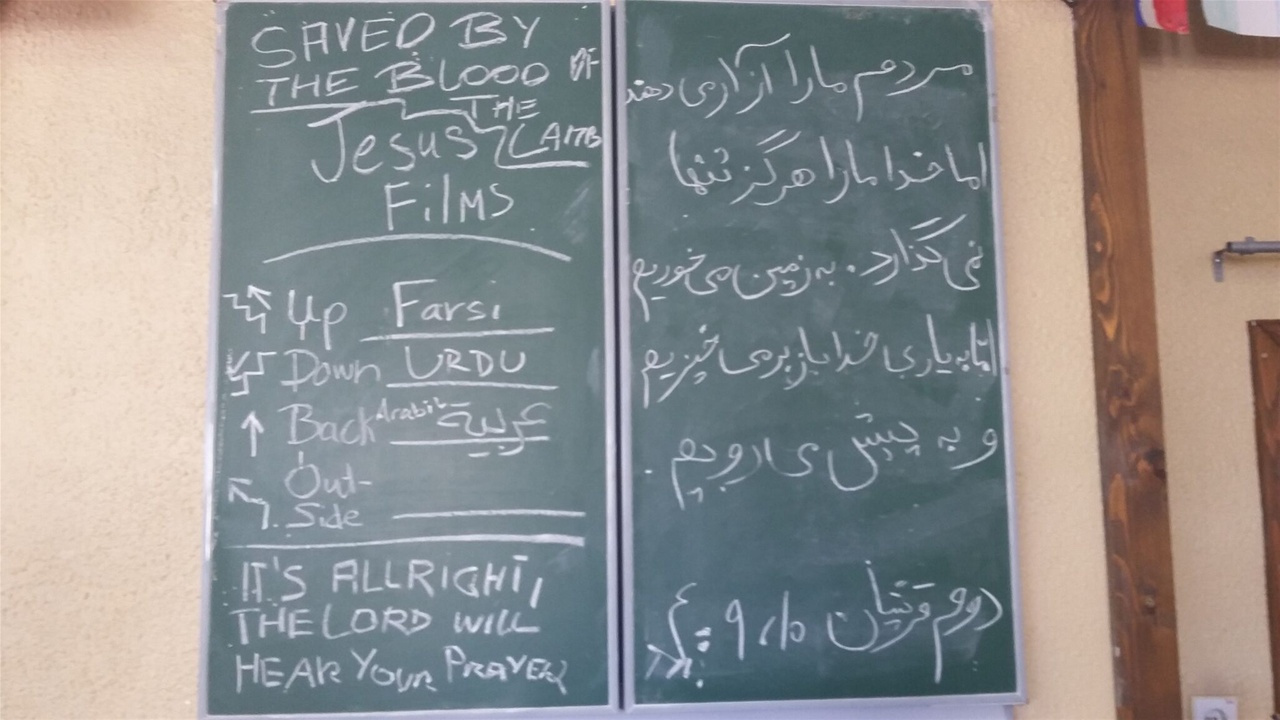 SAVED BY
THE BLOOD OF
THE
LAMB
Jesus
Films
Up Farsi
Down URDU
Back Arabic عربية
Out-
Side
IT'S ALLRIGHT,
THE LORD WILL
HEAR YOUR PRAYER
مردم ما را آزار می دهند
اما خدا ما را هرگز تنها
نمی گذارد. به زمین می خوریم
امّا به یاری خدا باز بر می خیزیم
و به پیش می رویم.
دوم قرنتیان ۹